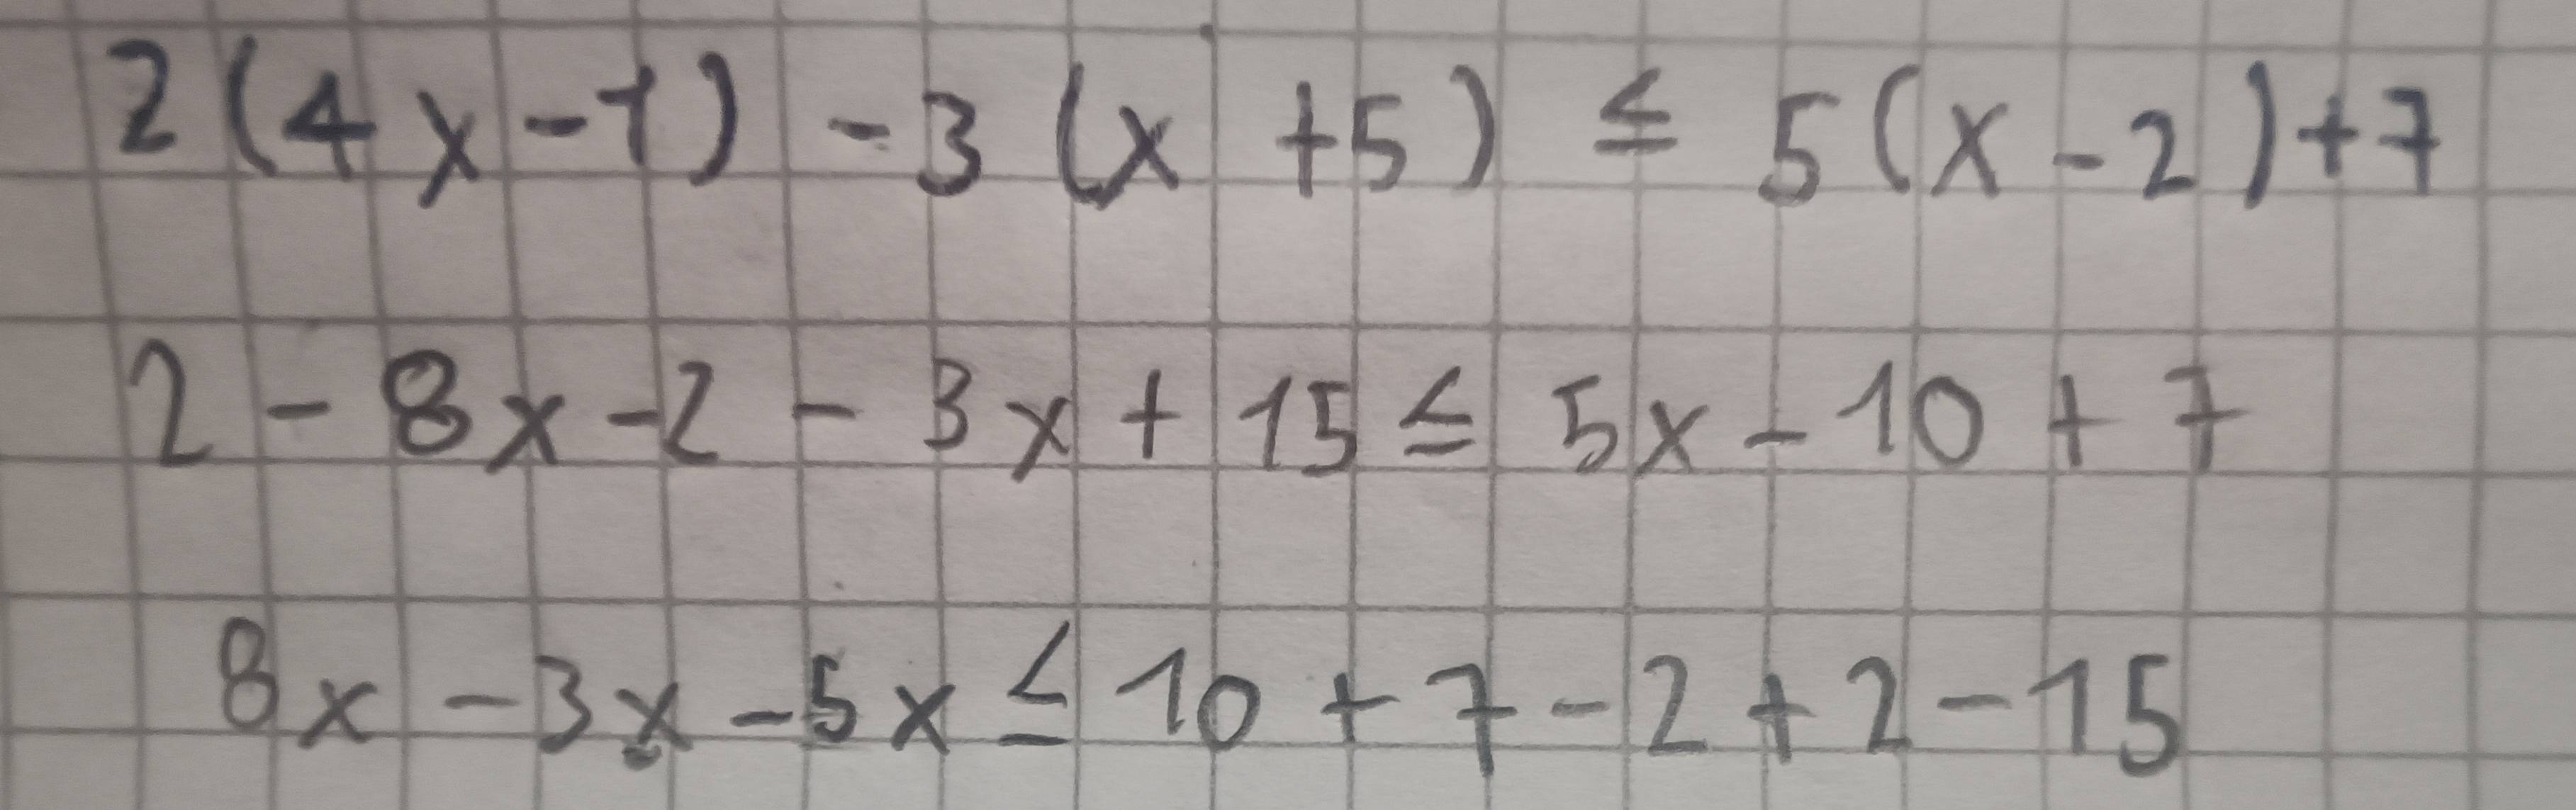 2(4x-1) -3(x+5) ≤ 5(x-2)+7
2-8x-2-3x+15≤5x-10+7
8x-3x-5x≤10+7-2+2-15